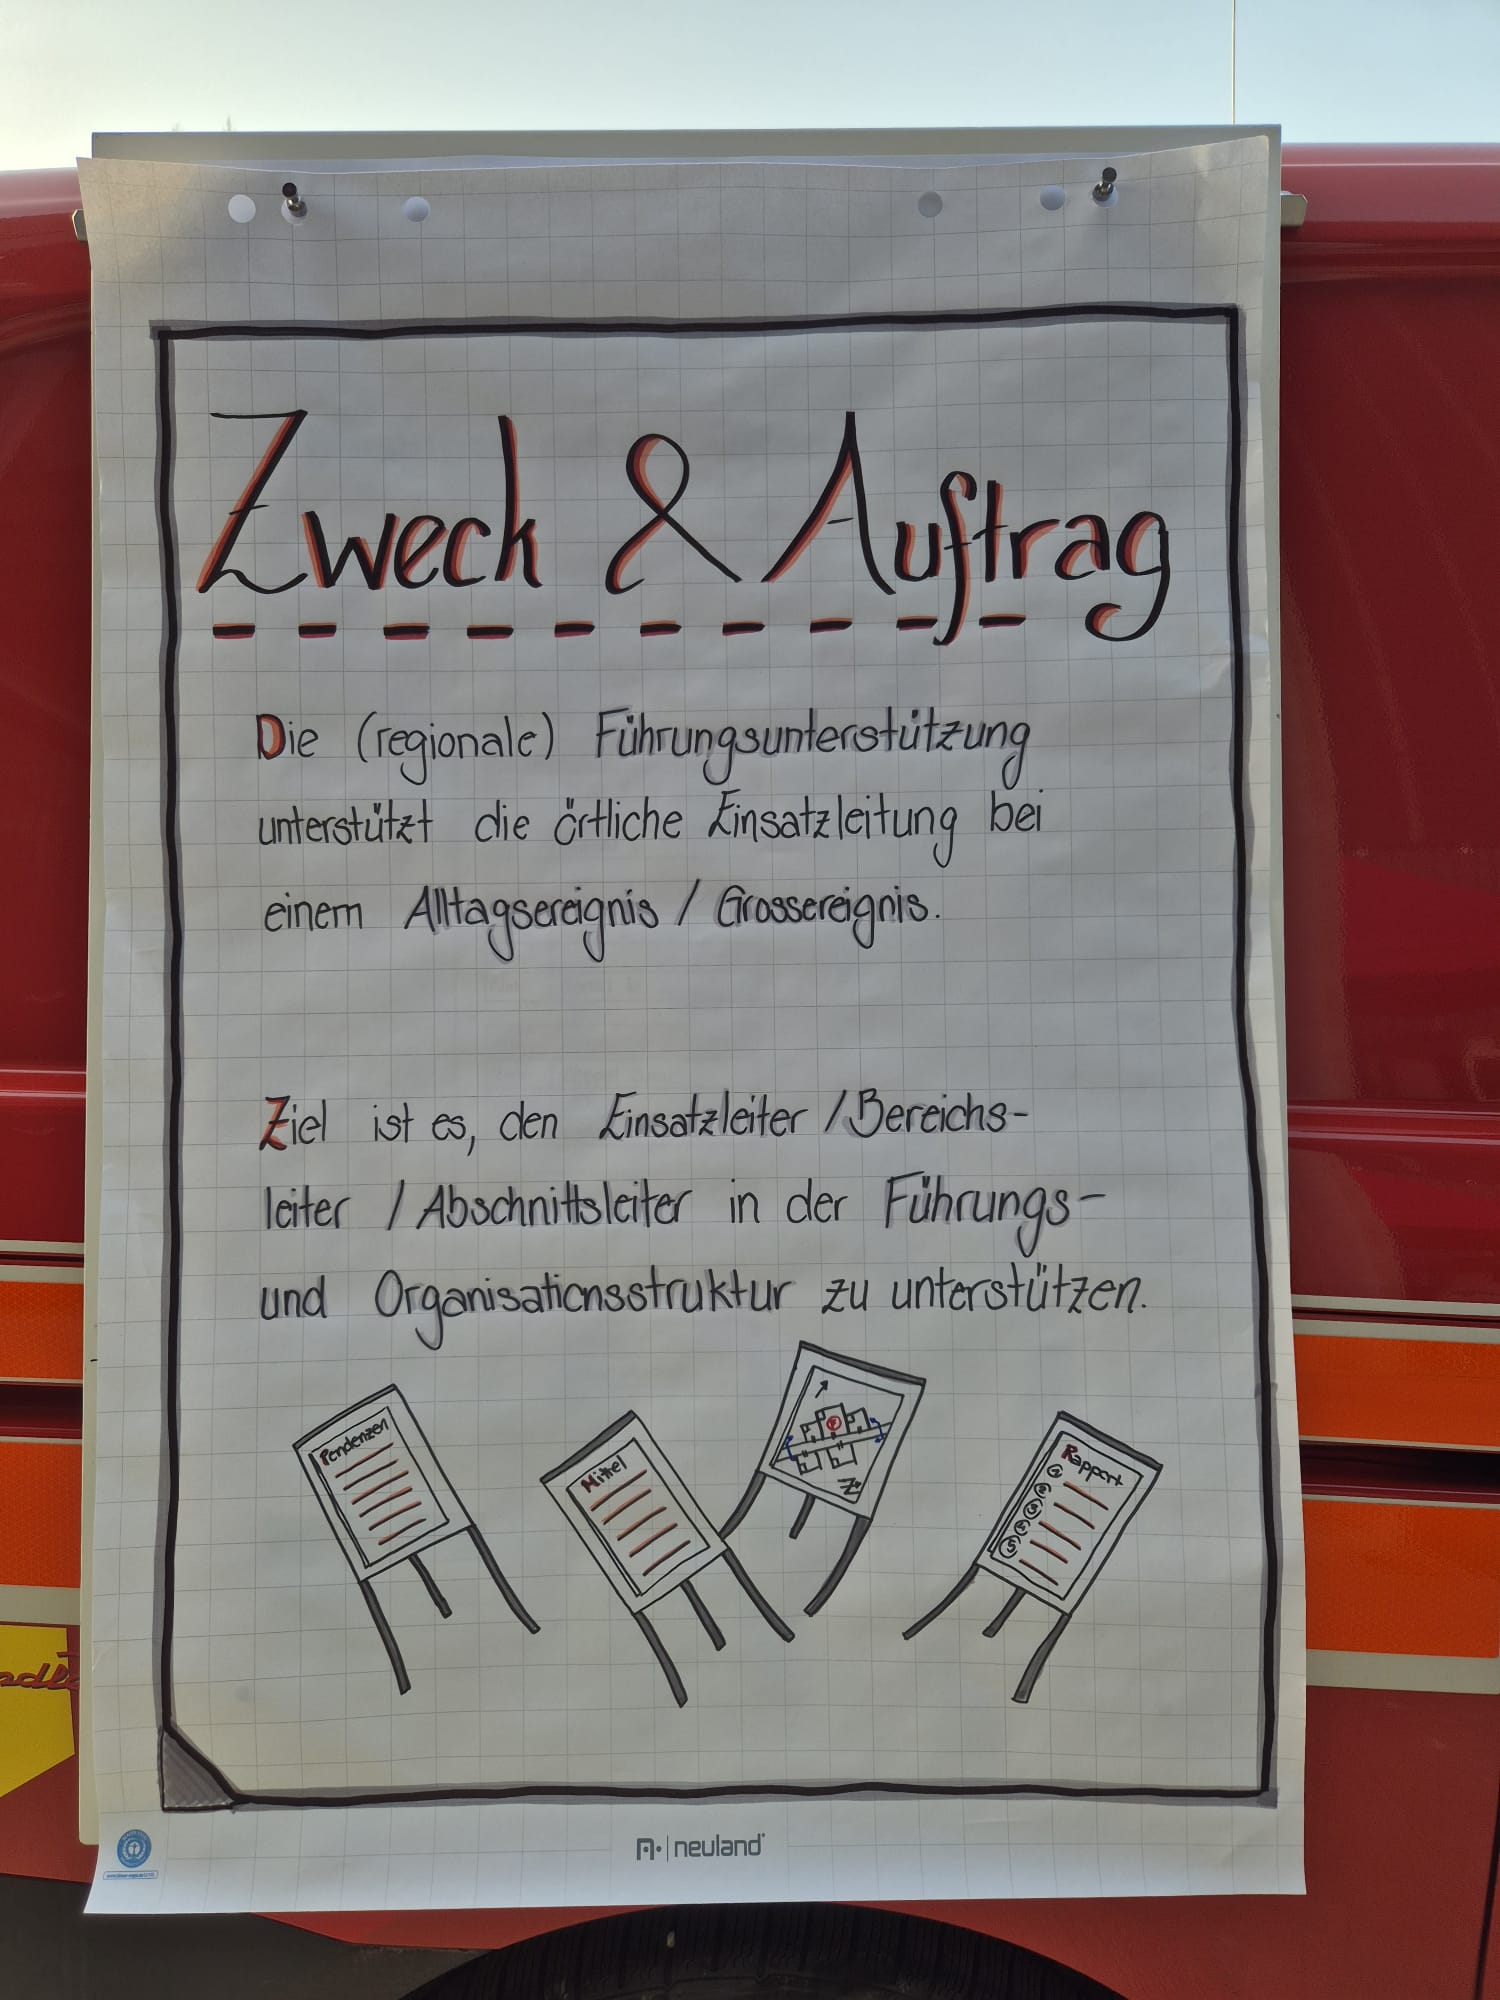 Zweck & Auftrag
Die (regionale) Führungsunterstützung
unterstützt die örtliche Einsatzleitung bei
einem Alltagsereignis / Grossereignis.
Ziel ist es, den Einsatzleiter / Bereichs-
leiter / Abschnittsleiter in der Führungs-
und Organisationsstruktur zu unterstützen.
Pendenzen
Mittel
Rapport
1
2
3
4
5
neuland